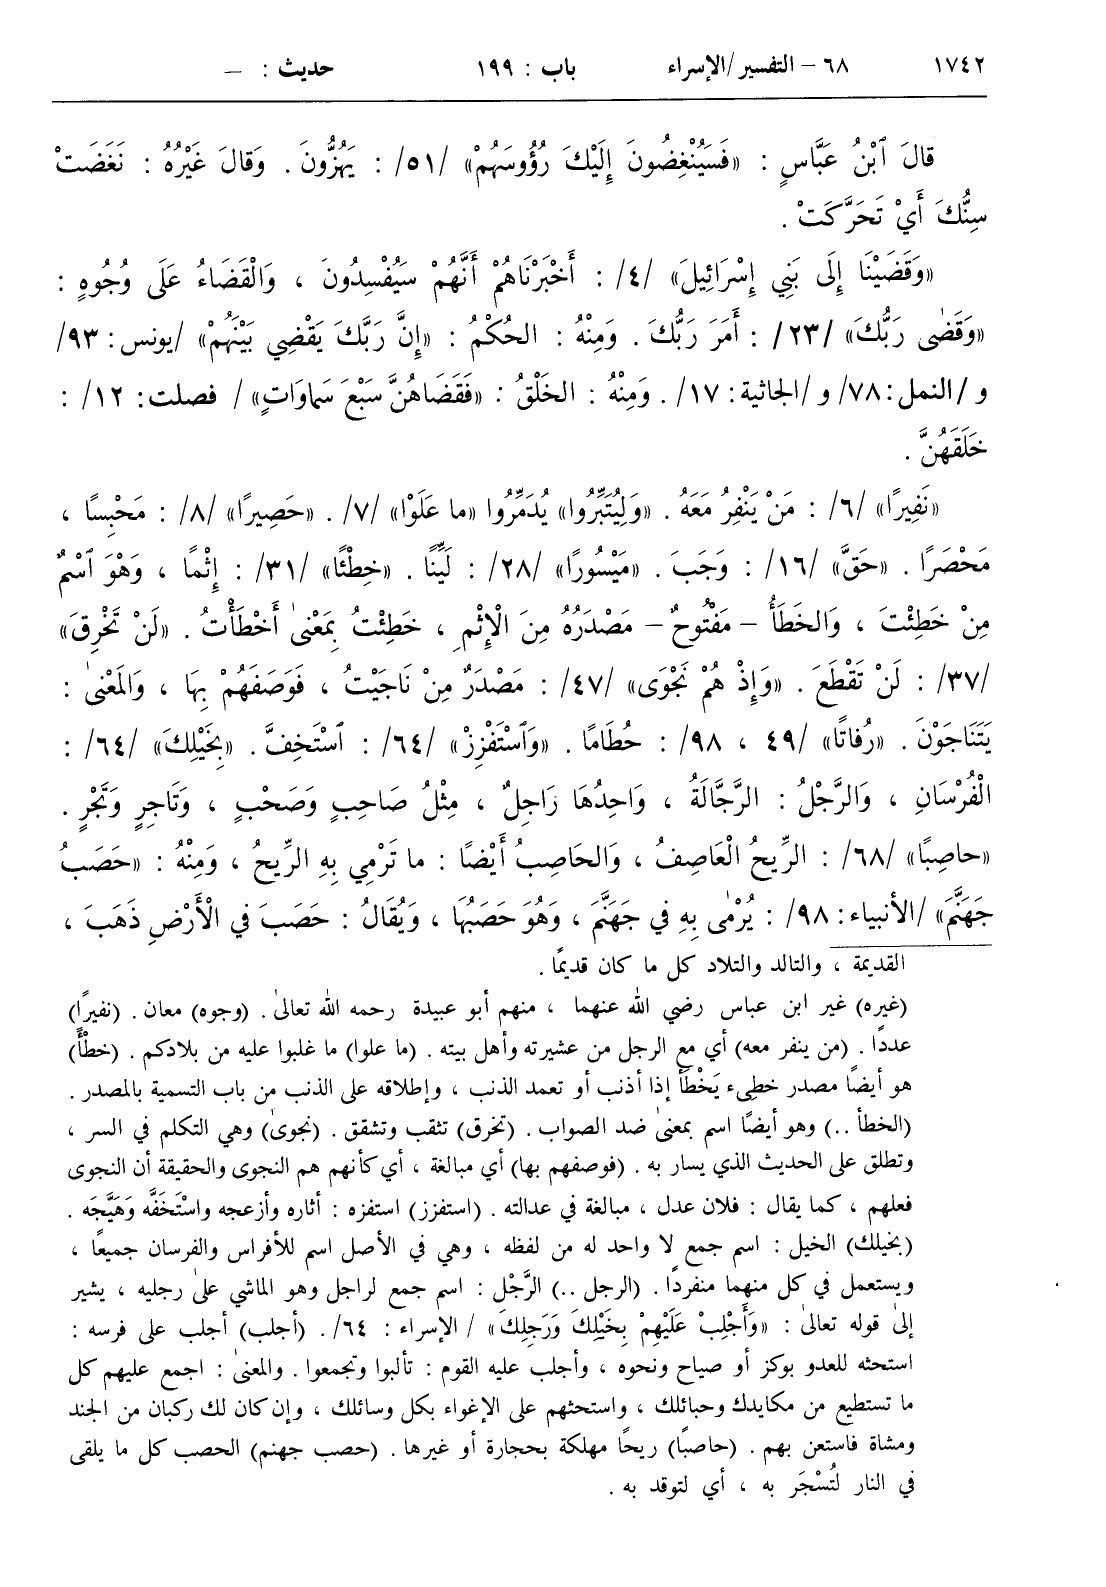 ١٧٤٢ ٦٨ – التفسير/الإسراء باب : ١٩٩ حديث : –
قالَ ٱبْنُ عَبَّاسٍ : «فَسَيُنْغِضُونَ إِلَيْكَ رُؤُوسَهُمْ» /٥١/ : يَهُزُّونَ . وَقالَ غَيْرُهُ : نَغَضَتْ
سِنُّكَ أَيْ تَحَرَّكَتْ .
«وَقَضَيْنَا إِلَى بَنِي إِسْرَائِيلَ» /٤/ : أَخْبَرْنَاهُمْ أَنَّهُمْ سَيُفْسِدُونَ ، وَالْقَضَاءُ عَلَى وُجُوهٍ :
«وَقَضٰى رَبُّكَ» /٢٣/ : أَمَرَ رَبُّكَ . وَمِنْهُ : الحُكْمُ : «إِنَّ رَبَّكَ يَقْضِي بَيْنَهُمْ» /يونس: ٩٣/
و /النمل: ٧٨/ و /الجاثية: ١٧/. وَمِنْهُ : الخَلْقُ : «فَقَضَاهُنَّ سَبْعَ سَمَاوَاتٍ» / فصلت: ١٢/ :
خَلَقَهُنَّ .
«نَفِيرًا» /٦/ : مَنْ يَنْفِرُ مَعَهُ . «وَلِيُتَبِّرُوا» يُدَمِّرُوا «ما عَلَوْا» /٧/. «حَصِيرًا» /٨/ : مَحْبِسًا ،
مَحْصَرًا . «حَقَّ» /١٦/ : وَجَبَ . «مَيْسُورًا» /٢٨/ : لَيِّنًا . «خِطْئًا» /٣١/ : إِثْمًا ، وَهْوَ ٱسْمٌ
مِنْ خَطِئْتَ ، وَالخَطَأُ – مَفْتُوحٌ – مَصْدَرُهُ مِنَ الْإِثْمِ ، خَطِئْتُ بِمَعْنىٰ أَخْطَأْتُ . «لَنْ تَخْرِقَ»
/٣٧/ : لَنْ تَقْطَعَ . «وَإِذْ هُمْ نَجْوَى» /٤٧/ : مَصْدَرٌ مِنْ نَاجَيْتُ ، فَوَصَفَهُمْ بِهَا ، وَالمَعْنىٰ :
يَتَنَاجَوْنَ . «رُفاتًا» /٤٩ ، ٩٨/ : حُطَامًا . «وَٱسْتَفْزِزْ» /٦٤/ : ٱسْتَخِفَّ . «بِخَيْلِكَ» /٦٤/ :
الْفُرْسَانِ ، وَالرَّجْلُ : الرَّجَّالَةُ ، وَاحِدُهَا رَاجِلٌ ، مِثْلُ صَاحِبٍ وَصَحْبٍ ، وَتَاجِرٍ وَتَجْرٍ .
«حاصِبًا» /٦٨/ : الرِّيحُ الْعَاصِفُ ، وَالحَاصِبُ أَيْضًا : ما تَرْمِي بِهِ الرِّيحُ ، وَمِنْهُ : «حَصَبُ
جَهَنَّمَ» /الأنبياء: ٩٨/ : يُرْمٰى بِهِ فِي جَهَنَّمَ ، وَهُوَ حَصَبُهَا ، وَيُقَالُ : حَصَبَ فِي الْأَرْضِ ذَهَبَ ،
القديمة ، والتالد والتلاد كل ما كان قديمًا .
(غيره) غير ابن عباس رضي الله عنهما ، منهم أبو عبيدة رحمه الله تعالىٰ . (وجوه) معان . (نفيرًا)
عددًا . (من ينفر معه) أي مع الرجل من عشيرته وأهل بيته . (ما علوا) ما غلبوا عليه من بلادكم . (خطْأً)
هو أيضًا مصدر خطِىء يَخْطَأ إذا أذنب أو تعمد الذنب ، وإطلاقه على الذنب من باب التسمية بالمصدر .
(الخطأ ..) وهو أيضًا اسم بمعنىٰ ضد الصواب . (تخرق) تثقب وتشقق . (نجوىٰ) وهي التكلم في السر ،
وتطلق على الحديث الذي يسار به . (فوصفهم بها) أي مبالغة ، أي كأنهم هم النجوى والحقيقة أن النجوى
فعلهم ، كما يقال : فلان عدل ، مبالغة في عدالته . (استفزز) استفزه : أثاره وأزعجه واسْتَخَفَّه وَهَيَّجَه .
(بخيلك) الخيل : اسم جمع لا واحد له من لفظه ، وهي في الأصل اسم للأفراس والفرسان جميعًا ،
ويستعمل في كل منهما منفردًا . (الرجل ..) الرَّجْل : اسم جمع لراجل وهو الماشي علىٰ رجليه ، يشير
إلىٰ قوله تعالىٰ : «وَأَجْلِبْ عَلَيْهِمْ بِخَيْلِكَ وَرَجِلِكَ» / الإسراء : ٦٤/. (أجلب) أجلب على فرسه :
استحثه للعدو بوكز أو صياح ونحوه ، وأجلب عليه القوم : تألبوا وتجمعوا . والمعنىٰ : اجمع عليهم كل
ما تستطيع من مكايدك وحبائلك ، واستحثهم على الإغواء بكل وسائلك ، وإن كان لك ركبان من الجند
ومشاة فاستعن بهم . (حاصبًا) ريحًا مهلكة بحجارة أو غيرها . (حصب جهنم) الحصب كل ما يلقى
في النار لتُسْجَر به ، أي لتوقد به .